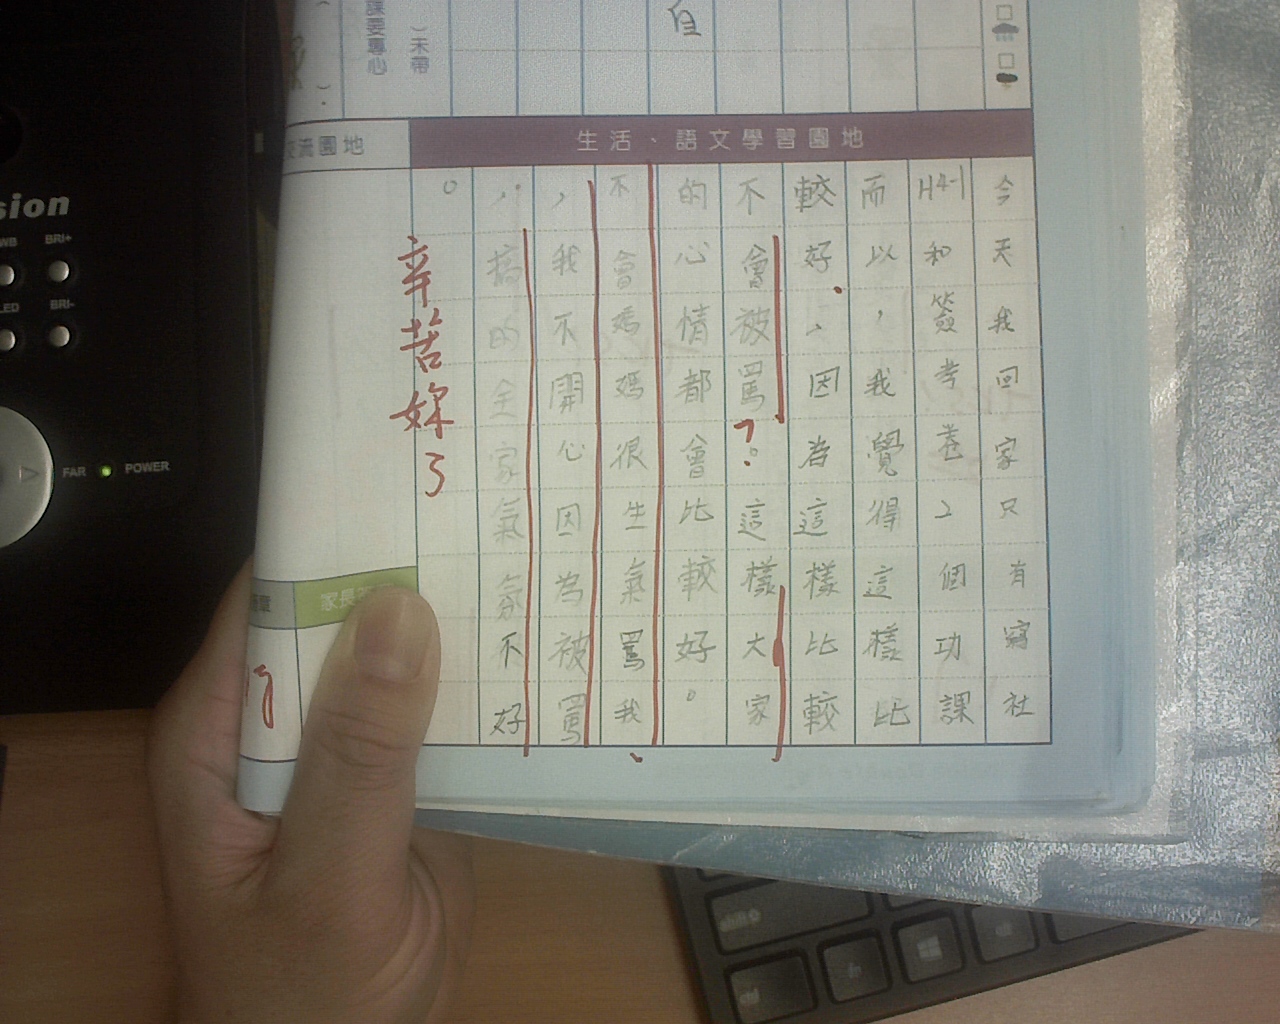 自
課要專心
)未帶
生活、語文學習園地
交流園地
今天我回家只有寫社
H4-1和簽考卷2個功課
而以,我覺得這樣比
較好、因為這樣比較
不會被罵。這樣大家
的心情都會比較好。
不會媽媽很生氣罵我
,我不開心因為被罵
,搞的全家氣氛不好
。
辛苦妳了
家長
sion
WB
BRI+
LED
BRI-
FAR
POWER